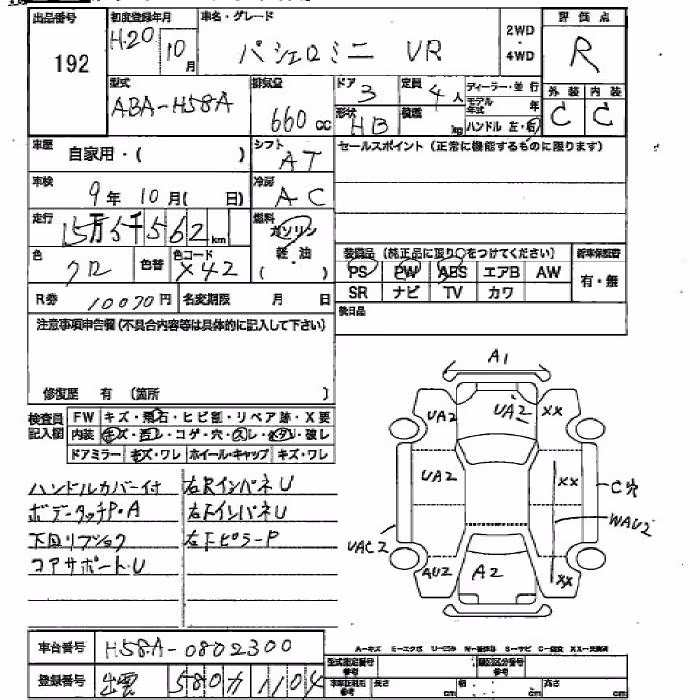 出品番号 192
初度登録年月 H.20 10月
車名・グレード パジェロミニ VR
2WD
4WD
評価点 R
型式 ABA-H58A
排気量 660cc
ドア 3
定員 4人
形状 HB
積載 kg
ディーラー・並行
モデル年式 年
ハンドル 左・右
外装 C
内装 C
車歴 自家用・( )
シフト AT
セールスポイント (正常に機能するものに限ります)
車検 9年10月( 日)
冷房 AC
走行 15万5千562km
燃料 ガソリン
軽油
( )
色 クロ
色替
色コード X42
装備品 (純正品に限り○をつけてください)
新車保証書
PS PW ABS エアB AW
SR ナビ TV カワ
有・無
R券 10070円
名変期限 月 日
後日品
注意事項申告欄(不具合内容等は具体的に記入して下さい)
修復歴 有 (箇所 )
検査員記入欄
FW キズ・飛石・ヒビ割・リペア跡・X要
内装 キズ・汚レ・コゲ・穴・スレ・ヘタリ・破レ
ドアミラー キズ・ワレ ホイール・キャップ キズ・ワレ
ハンドルカバー付 右Rインパネ U
ボデータッチP・A 右Fインパネ U
下回リフショク 右FピラーP
コアサポート・U
A1
UA2 UA2 XX
UA2 XX
C穴
WAU2
UAC2
AU2 A2 XX
車台番号 H58A-0802300
登録番号 出雲 580 カ 1104
A-キズ E-エクボ U-凹み W-補修跡 S-サビ C-腐食 XX-交換済
型式指定番号 参考
類別区分番号 参考
車体証明用 参考 長さ cm 幅 cm 高さ cm